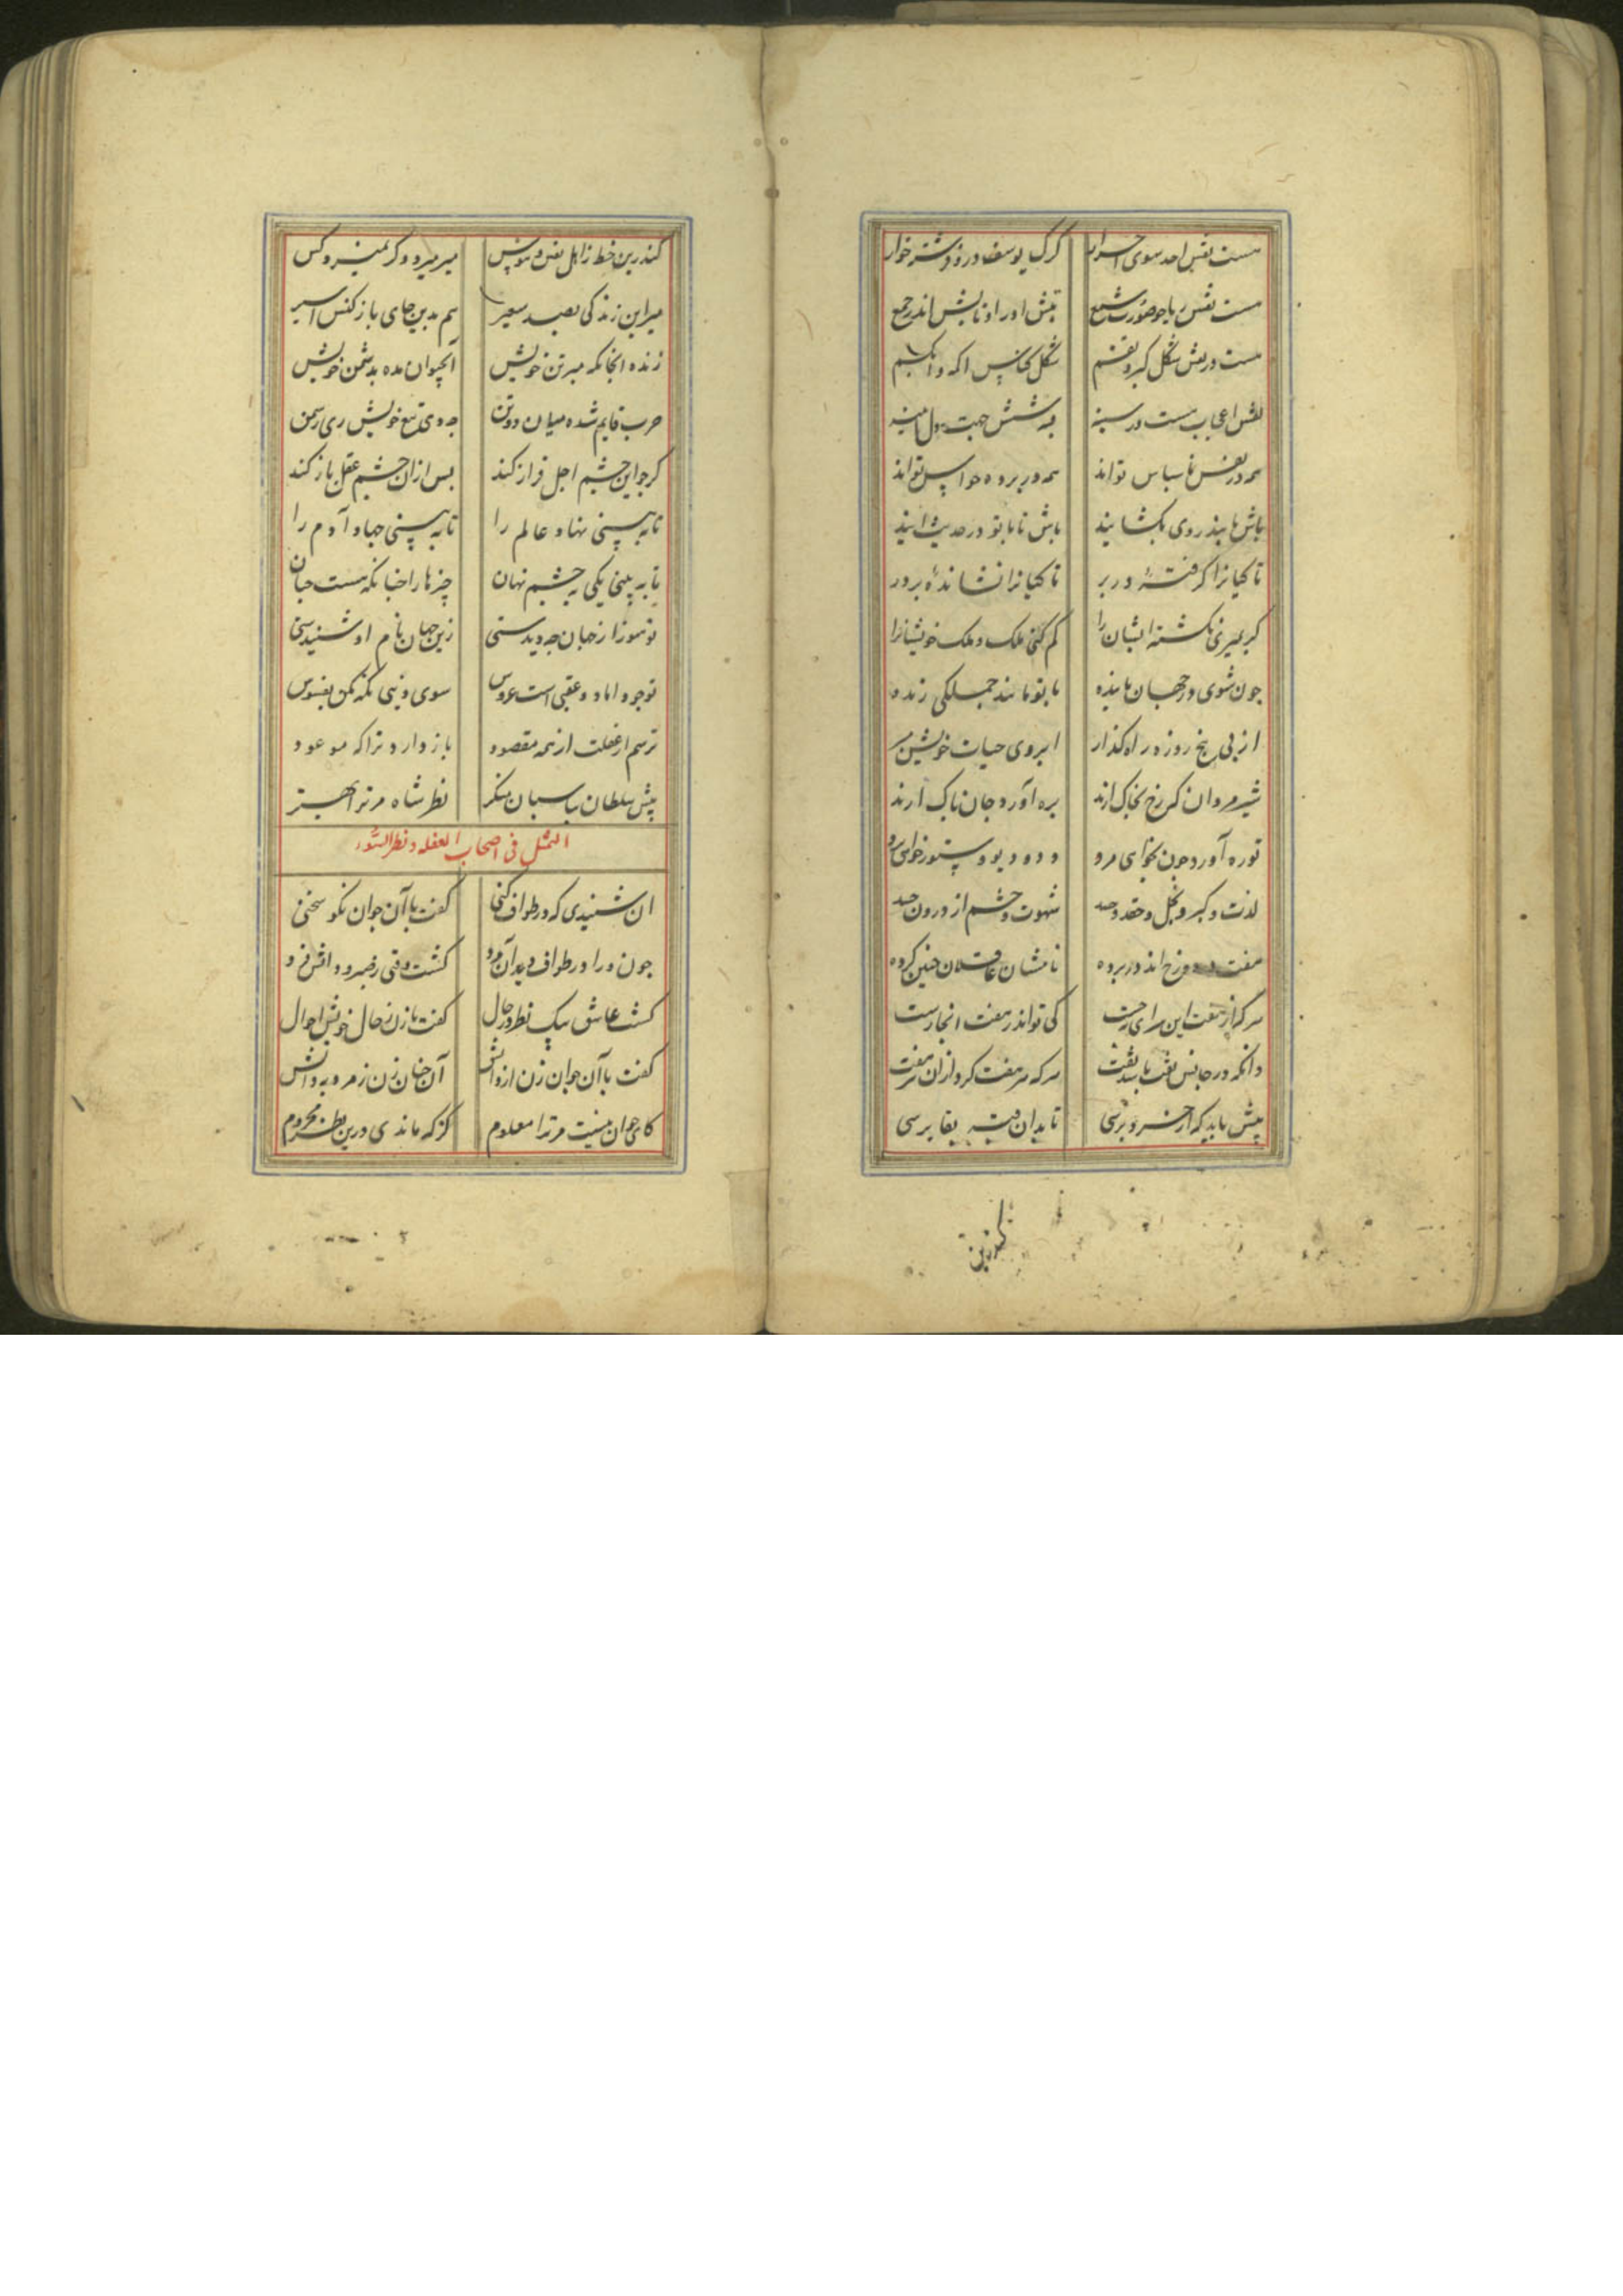 هست نفس احد سوی احرار گرک یوسف درز و شتر خوار
هست نفس با جو صورت شمع تبش اورا و تابش اندر جمع
هست در پیش شکل کبر و بغشم شکل کناس اکه و ابکم
نفس اعجاب هست در سینه شش جهت هول
همه در نفس ناسپاس تواند همه در پرده حواس تواند
باش تا بند روی بکشایند باش تا با تو در حدیث ایند
تا کیانرا کرفتهٔ در بر تا کیانرا نشاندهٔ بر در
کر بمیری نکشته ایشان را کم کنی ملک و ملک خویشانرا
چون شوی در جهان باینده با تو مانند جملکی زنده
از پی پنج روزه راه کذار ابروی حیات خویش مبر
شیرمردان که رخ بخاک ارند بره آورد جان پاک ارند
تو ره آورد چون بخوای مرو دد و دیو و ستور خواهی
لذت و کبر و بخل و حقد و حسد شهوت و خشم از درون جسد
هفت دوزخ اند در پرده نامشان عاقلان چنین کرده
هر که از هفت این سرای برست کی تواند ز هفت انجا رست
وانکه در جانش هفت باشد هفت هر که هر هفت کرد ازان هر هفت
پیش باید که از خسرو پرسی تا بدان بقا برسی
کندرین
کندرین خط ز اهل نفس و نفس میر میرد و کر نمیرد کس
میر ازین زندکی بصید سعیر هم بدین جای باز کنش اسیر
زنده انجا نکه میر تن خویش آبحیوان مده بدشمن خویش
حرب قایم شده میان دو تن چه دهی تیغ خویش زی دشمن
کر چه این چشم اجل فراز کند پس ازان چشم عقل باز کند
تا به بینی نهاد عالم را تا به بینی جهاد آدم را
تا به بینی یکی به چشم نهان چیزها را چنانکه هست جهان
تو هنوز از جهان چه دیدستی زین جهان نام او شنیدستی
تو چو داماد و عقبی است عروس سوی دنیی نکه مکن بفسوس
ترسم از غفلت از همه مقصود باز دارد تراکه موعود
پیش سلطان بپاسبان منکر نظر شاه مر ترا بهتر
التمثل فی اصحاب الغفله و نظر السوء
ان شنیدی که در طواف زنی کفت با آن جوان نکو سخنی
چون ورا در طواف دید آن مرد کشت
کشت عاشق بیک نظر در حال کفت با زن ز حال خویش احوال
کفت با آن جوان زن از دانش آن چنان زن ز مرد به دانش
کای جوان نیست مر ترا معلوم کز که ماندی درین نظر محروم